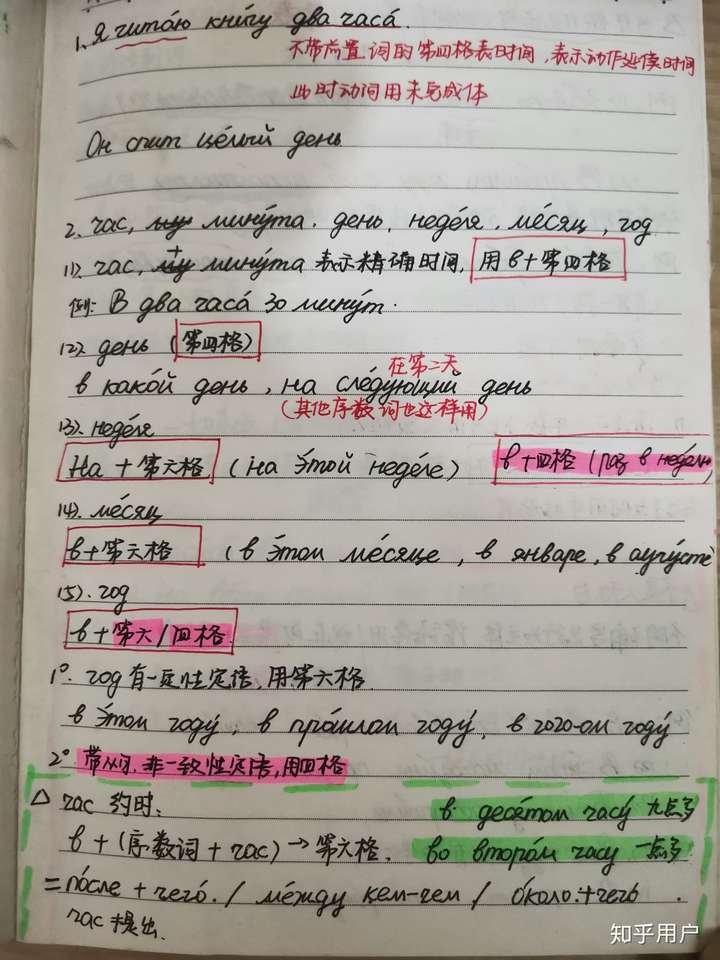 1. Я читаю книгу два часа́.
不带前置词的第四格表时间,表示动作延续时间
此时动词用未完成体
Он спит це́лый день
2. час, мину́та, день, неде́ля, ме́сяц, год
(1). час, + мину́та 表示精确时间, 用 в+第四格
例: В два часа́ 30 мину́т.
(2). день (第四格)
在第二天
в како́й день, на сле́дующий день
(其他序数词也这样用)
(3). неде́ля
На + 第六格 (на э́той неде́ле) в+四格 (раз в неделю
(4). ме́сяц
в+第六格 (в э́том ме́сяце, в январе, в а́вгусте
(5). год
в+第六/四格.
1°. год有一定性定语,用第六格.
в э́том году́, в про́шлом году́, в 2020-ом году́
2° 带从句、非一致性定语,用四格
△ час 约时:
в деся́том часу́ 九点多
в + (序数词 + час) → 第六格. во второ́м часу 一点多
= по́сле + чего́. / ме́жду кем-чем / о́коло.+чего́ .
час 提出.
知乎用户